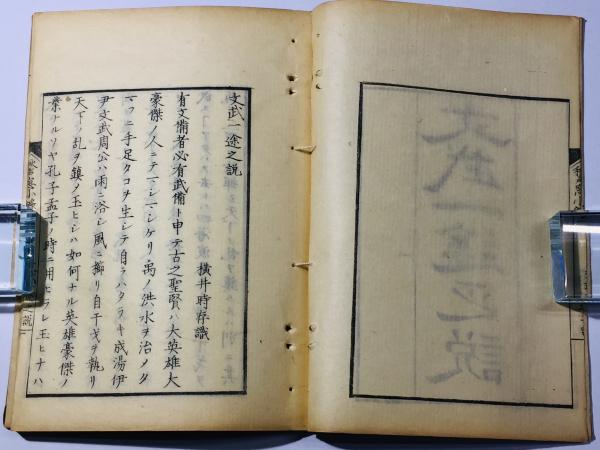 文武一途之説
横井時存識
有文備者必有武備ト申テ古之聖賢ハ大英雄大
豪傑ノ人ニテマシマシケリ禹ノ洪水ヲ治メ
ニ手足タコヲ生シテ自ラハタラキ成湯伊
尹文武周公ハ雨ニ浴シ風ニ櫛リ自干戈ヲ執リ
天下ノ乱ヲ鎮メ玉ヒシハ如何ナル英雄豪傑ノ
業ナルソヤ孔子孟子ノ時ニ用ヒラレ玉ヒナハ
説